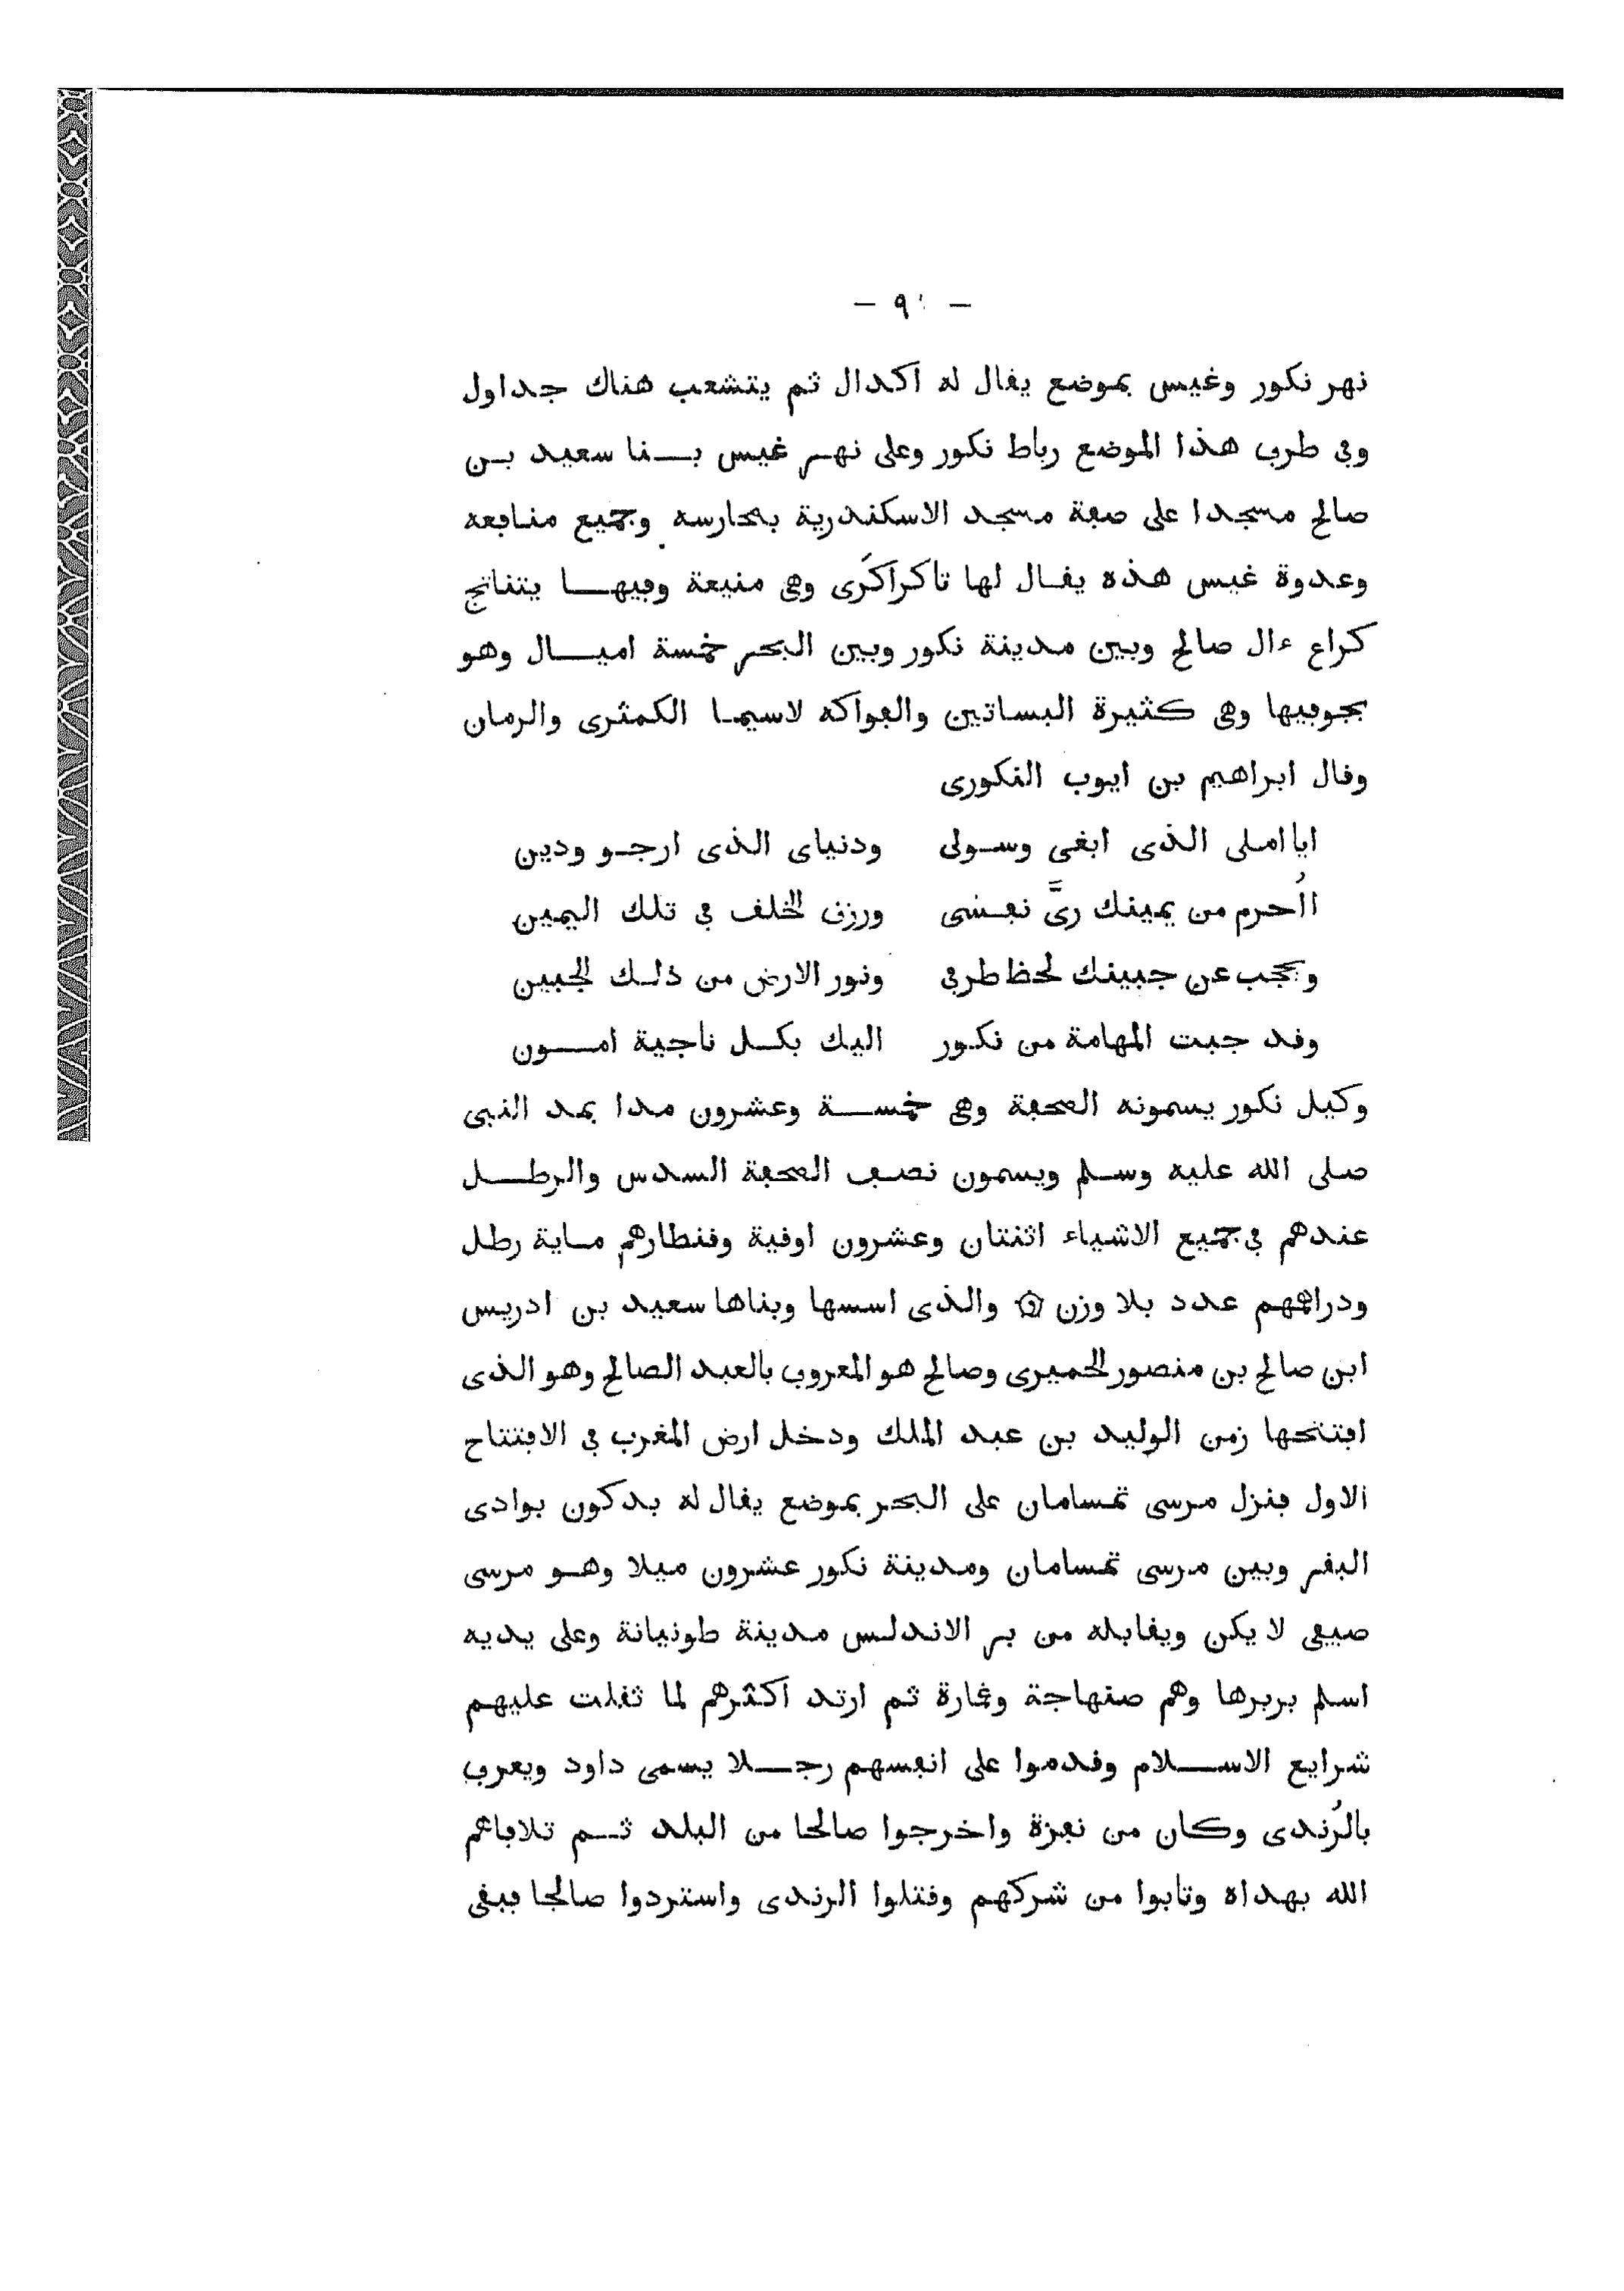 — ٩ —
نهر نكور وغيس بموضع يقال له اكدال ثم يتشعب هناك جداول
وفى طرف هذا الموضع رباط نكور وعلى نهر غيس بنا سعيد بن
صالح مسجدا على صفة مسجد الاسكندرية بمحارسه وجميع منافعه
وعدوة غيس هذه يقال لها تاكراكَرى وهى منيعة وفيها يتناتج
كراع ءال صالح وبين مدينة نكور وبين البحر خمسة اميال وهو
بجوفيها وهى كثيرة البساتين والفواكه لاسيما الكمثرى والرمان
وقال ابراهيم بن ايوب النكورى
ايا املى الذى ابغى وسولى ودنياى الذى ارجو ودين
اأُحرم من يمينك رىَّ نفسى ورزق الخلف فى تلك اليمين
ويحجب عن جبينك لحظ طرفى ونور الارض من ذلك الجبين
وقد جبت المهامة من نكور اليك بكل ناجية امون
وكيل نكور يسمونه الصحفة وهى خمسة وعشرون مدا بمد النبى
صلى الله عليه وسلم ويسمون نصف الصحفة السدس والرطل
عندهم فى جميع الاشياء اثنتان وعشرون اوقية وقنطارهم ماية رطل
ودراهمهم عدد بلا وزن ۞ والذى اسسها وبناها سعيد بن ادريس
ابن صالح بن منصور الحميرى وصالح هو المعروف بالعبد الصالح وهو الذى
افتتحها زمن الوليد بن عبد الملك ودخل ارض المغرب فى الافتتاح
الاول فنزل مرسى تمسامان على البحر بموضع يقال له بدكون بوادى
البقر وبين مرسى تمسامان ومدينة نكور عشرون ميلا وهو مرسى
صيفى لا يكن ويقابله من بر الاندلس مدينة طونيانة وعلى يديه
اسلم بربرها وهم صنهاجة وغمارة ثم ارتد اكثرهم لما ثقلت عليهم
شرايع الاسلام وقدموا على انفسهم رجلا يسمى داود ويعرف
بالرُندى وكان من نفزة واخرجوا صالحا من البلد ثم تلافاهم
الله بهداه وتابوا من شركهم وقتلوا الرندى واستردوا صالحا فبقى